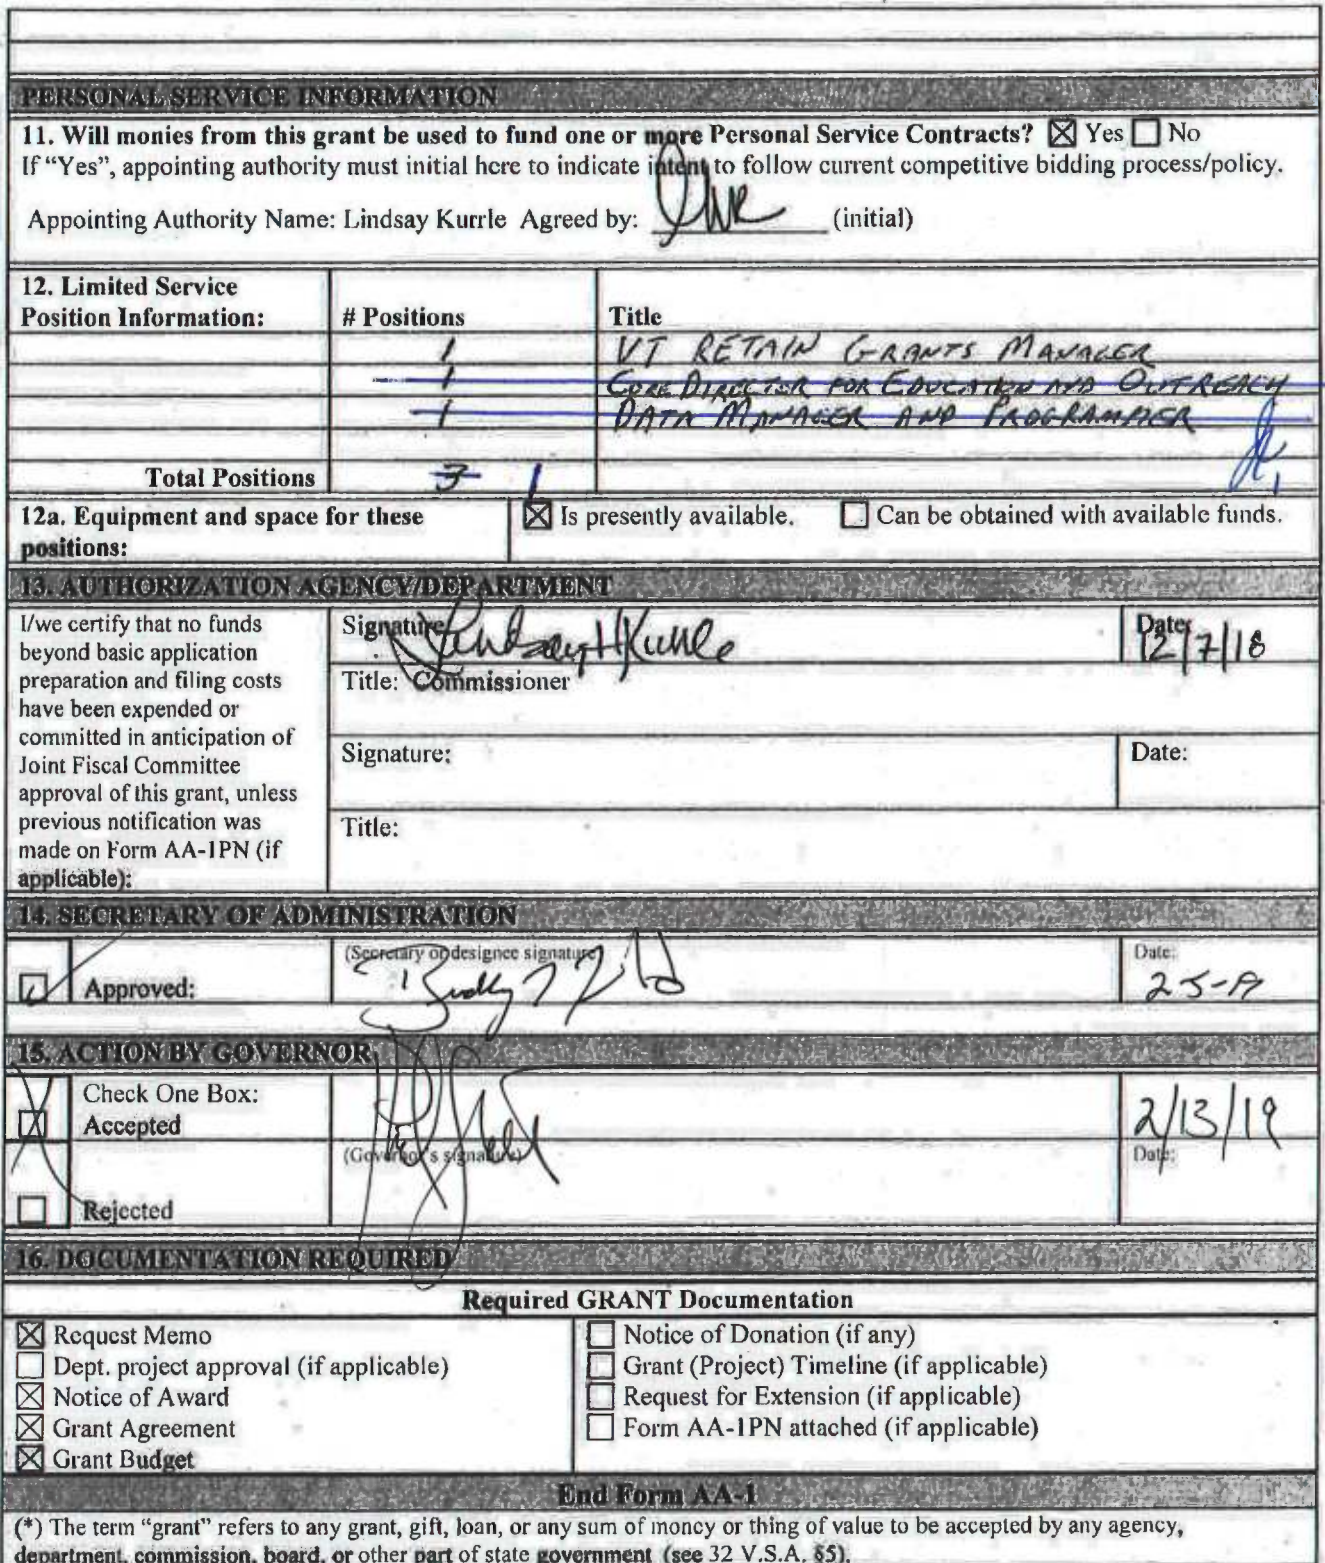 PERSONAL SERVICE INFORMATION
11. Will monies from this grant be used to fund one or more Personal Service Contracts? ☒ Yes ☐ No
If "Yes", appointing authority must initial here to indicate intent to follow current competitive bidding process/policy.
Appointing Authority Name: Lindsay Kurrle Agreed by: (initial)
12. Limited Service
Position Information: # Positions Title
1 VT RETAIN GRANTS MANAGER
1 CORE DIRECTOR FOR EDUCATION AND OUTREACH
1 DATA MANAGER AND PROGRAMMER
Total Positions 3 1
12a. Equipment and space for these
positions:
☒ Is presently available. ☐ Can be obtained with available funds.
13. AUTHORIZATION AGENCY/DEPARTMENT
I/we certify that no funds
beyond basic application
preparation and filing costs
have been expended or
committed in anticipation of
Joint Fiscal Committee
approval of this grant, unless
previous notification was
made on Form AA-1PN (if
applicable):
Signature: Lindsay H Kurrle Date: 12/7/18
Title: Commissioner
Signature: Date:
Title:
14. SECRETARY OF ADMINISTRATION
(Secretary or designee signature) Date:
Approved:
15. ACTION BY GOVERNOR
Check One Box:
Accepted 2/13/19
(Governor's signature) Date:
☐ Rejected
16. DOCUMENTATION REQUIRED
Required GRANT Documentation
☒ Request Memo
☐ Dept. project approval (if applicable)
☒ Notice of Award
☒ Grant Agreement
☒ Grant Budget
☐ Notice of Donation (if any)
☐ Grant (Project) Timeline (if applicable)
☐ Request for Extension (if applicable)
☐ Form AA-1PN attached (if applicable)
End Form AA-1
(*) The term "grant" refers to any grant, gift, loan, or any sum of money or thing of value to be accepted by any agency,
department, commission, board, or other part of state government (see 32 V.S.A. §5).